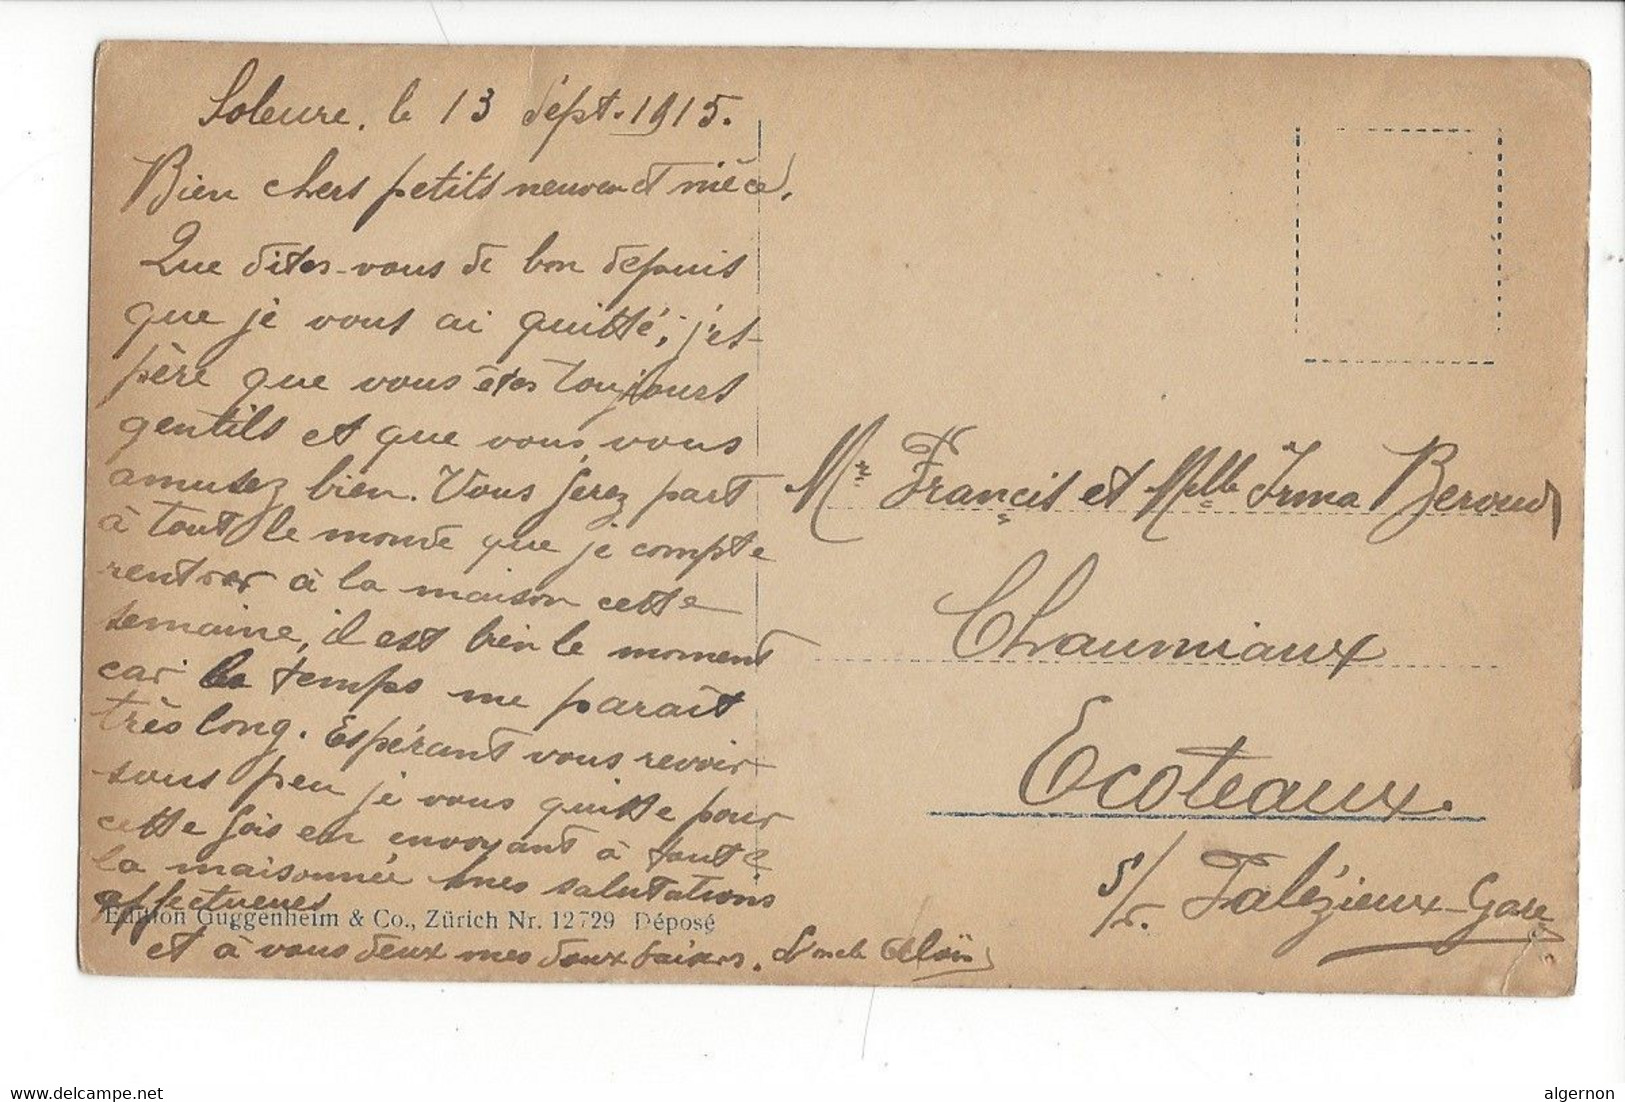 Soleure, le 13 Sept. 1915.
Bien chers petits neuveu et nièce,
Que dites-vous de bon depuis
que je vous ai quitté, j'es-
père que vous êtes toujours
gentils et que vous vous
amusez bien. Vous ferez part
à tout le monde que je compte
rentrer à la maison cette
semaine, il est bien le moment
car le temps me parait
très long. Espérant vous revoir
sous peu je vous quitte pour
cette fois en envoyant à toute
la maisonnée mes salutations
affectueuses
et à vous deux mes doux baisers. L'oncle Eloïs
Edition Guggenheim & Co., Zürich Nr. 12729 Déposé
Mr Francis et Melle Irma Beroud
Chaumiaux
Ecoteaux.
s/. Palézieux-Gare
www.delcampe.net
algernon